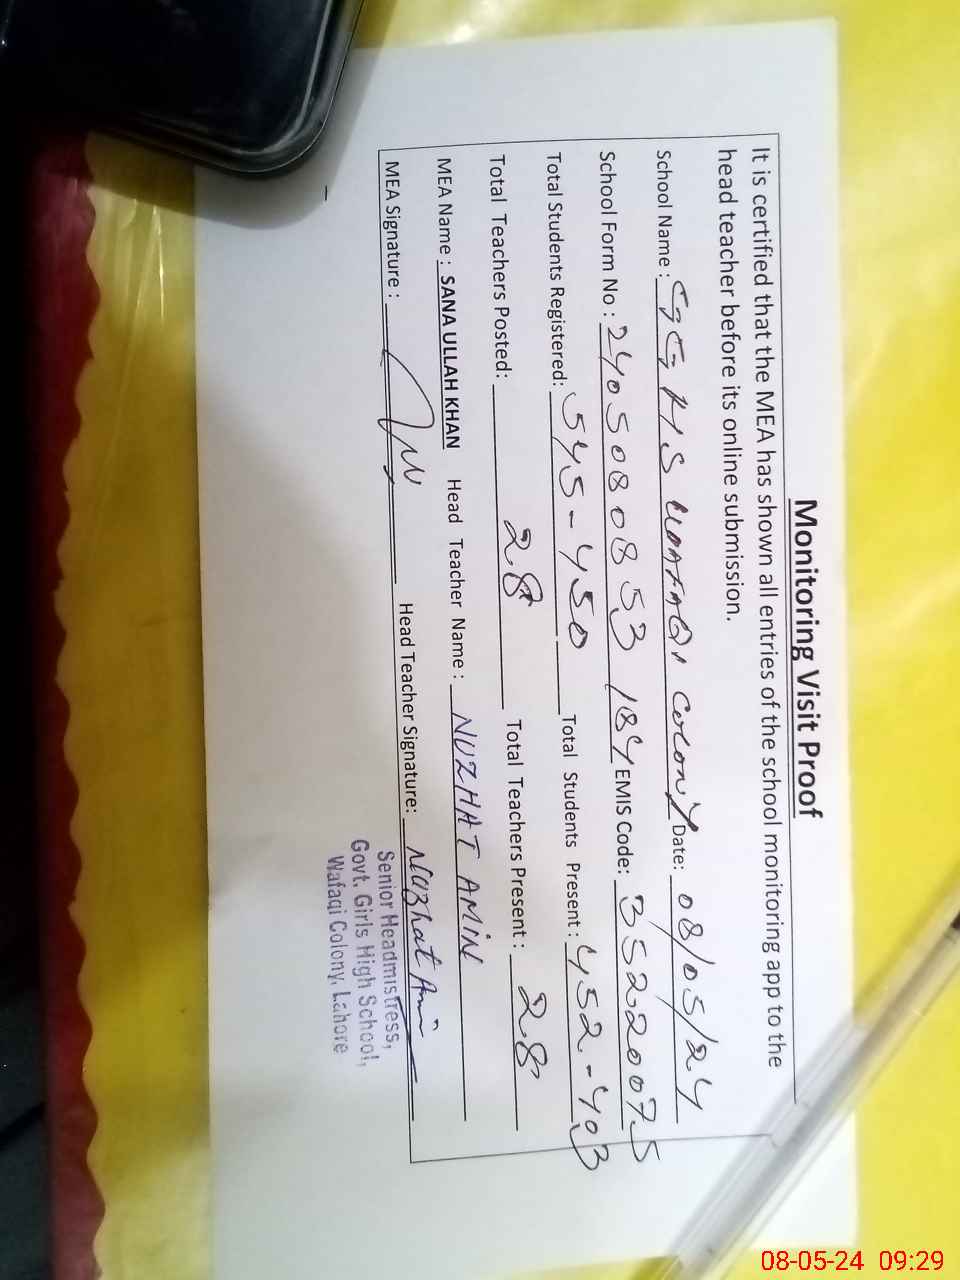 Monitoring Visit Proof
It is certified that the MEA has shown all entries of the school monitoring app to the
head teacher before its online submission.
School Name : GGHS WAFAQI COLONY Date: 08/05/24
School Form No : 240508 0853 184 EMIS Code: 35220075
Total Students Registered: 545-450 Total Students Present : 452-403
Total Teachers Posted: 28 Total Teachers Present : 28
MEA Name : SANA ULLAH KHAN Head Teacher Name : NUZHAT AMIN
MEA Signature : Head Teacher Signature: Nuzhat Amin
Senior Headmistress,
Govt. Girls High School,
Wafaqi Colony, Lahore
08-05-24 09:29